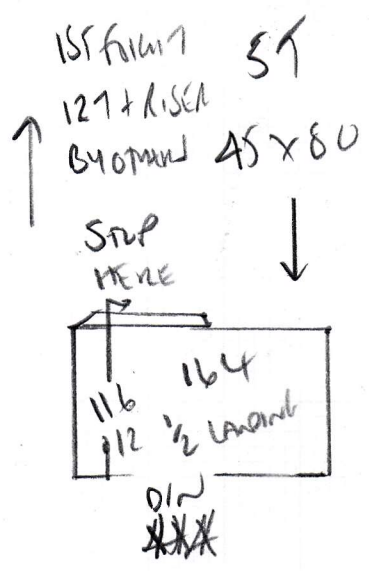 1ST FLIGHT
12T + RISER
BY OTHERS
5T
45 X 80
STOP
HERE
164
116
112
½ LANDING